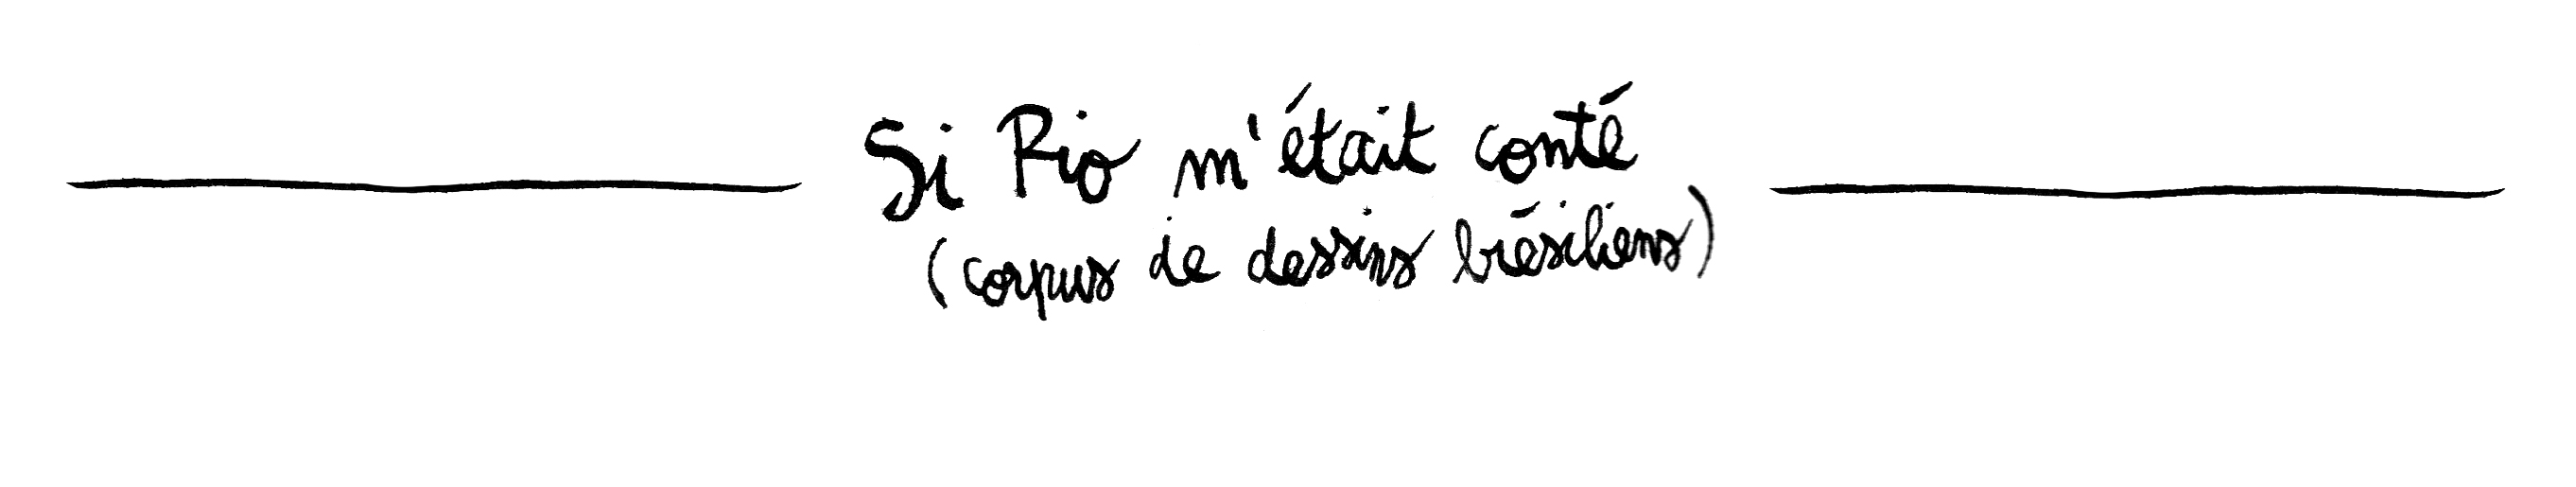 Si Rio m'était conté
(corpus de dessins brésiliens)